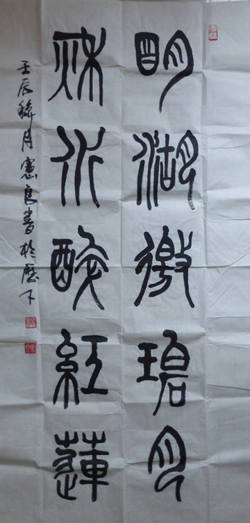 明湖碧月
秋水醉紅蓮
壬辰月良書於歷下